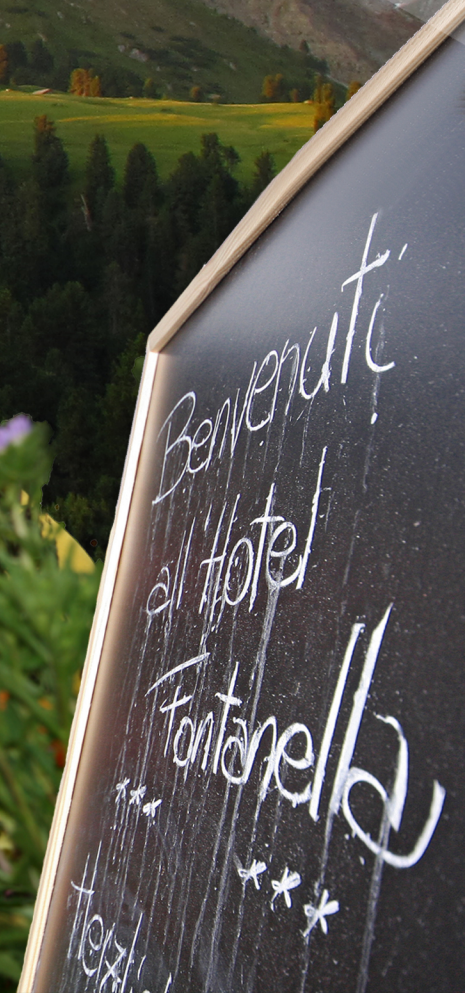 Benvenuti
all Hotel
Fontanella
*** ***